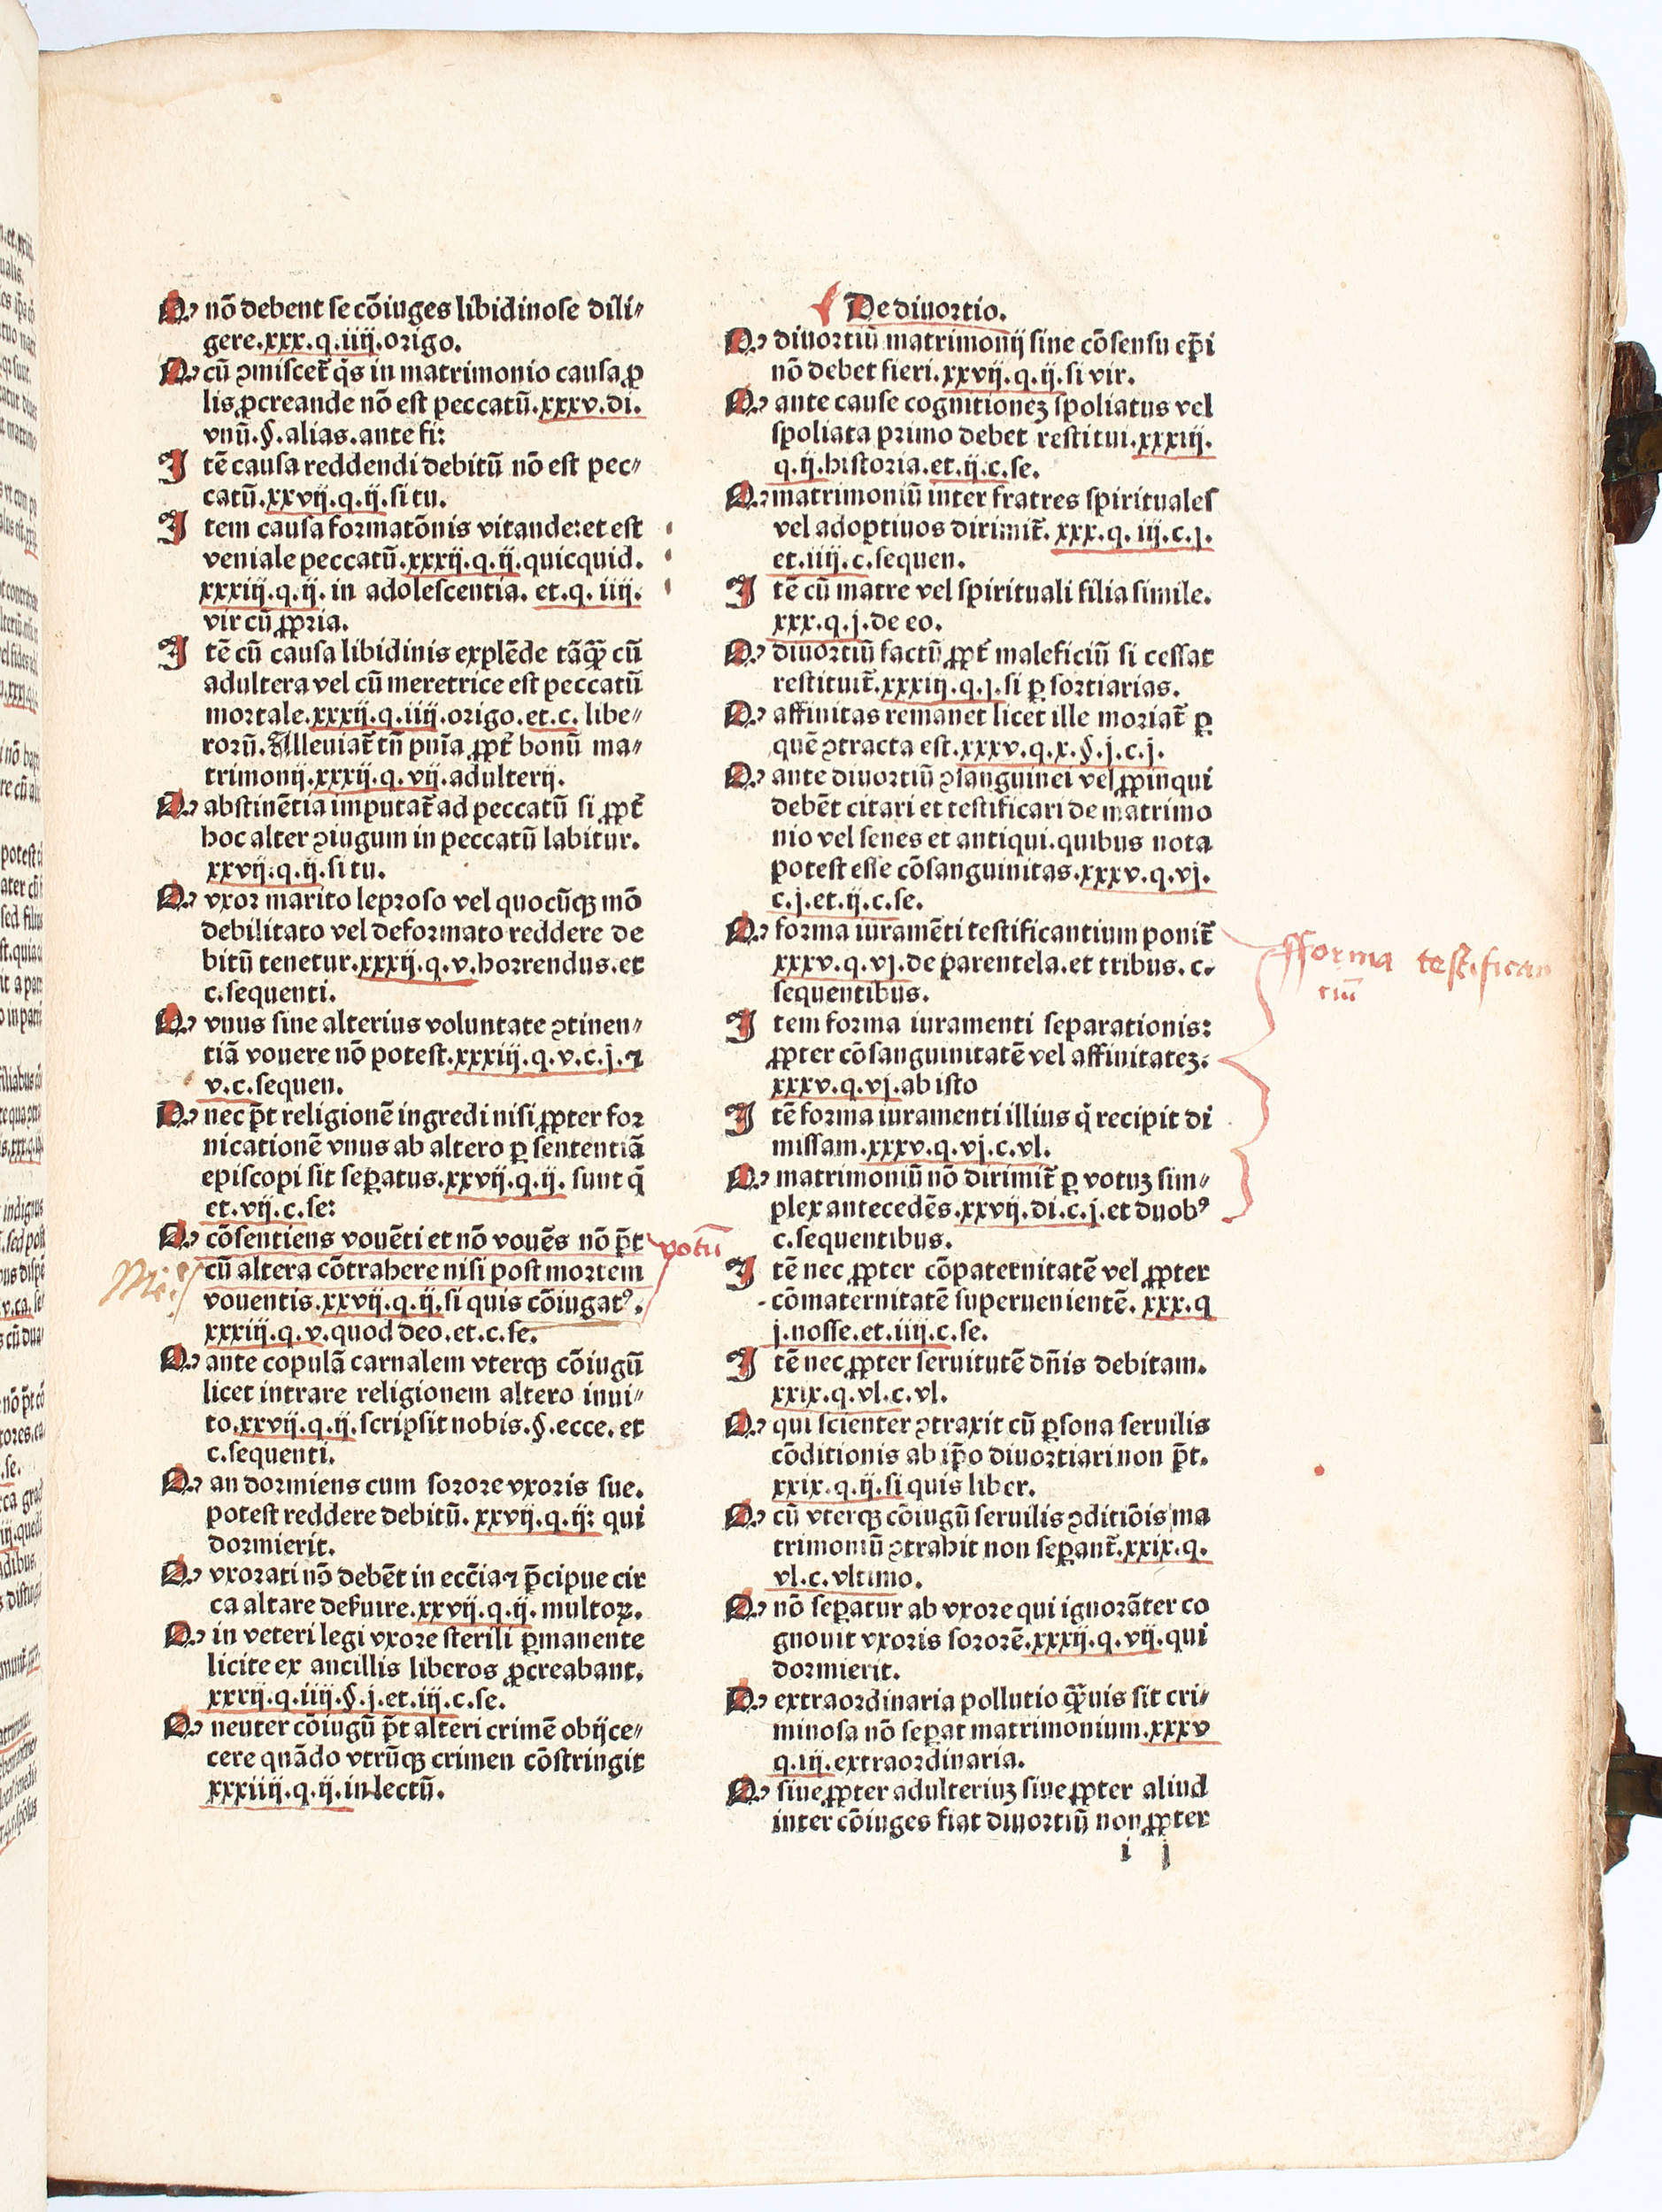 Q, nō debent se cōiuges libidinose dili⸗
gere.xxx.q.iiij.origo.
Q, cū ꝯmiscet̃ q̃s in matrimonio causa ꝓ
lis ꝓcreande nō est peccatū.xxxv.di.
vnū.§.alias.ante fi:
I tē causa reddendi debitū nō est pec⸗
catū.xxvij.q.ij.si tu.
I tem causa formatōnis vitande:et est
veniale peccatū.xxxij.q.ij.quicquid.
xxxiij.q.ij. in adolescentia. et.q. iiij.
vir cū ꝓpria.
I tē cū causa libidinis explēde tāꝙ̃ cū
adultera vel cū meretrice est peccatū
mortale.xxxij.q.iiij.origo.et.c. libe⸗
rorū.Alleuiat̃ tñ pñia ꝓpt̃ bonū ma⸗
trimonij.xxxij.q.vij.adulterij.
Q, abstinētia imputat̃ ad peccatū si ꝓpt̃
hoc alter ꝯiugum in peccatū labitur.
xxvij:q.ij.si tu.
Q, vxor marito leproso vel quocūqꝫ mō
debilitato vel deformato reddere de
bitū tenetur.xxxij.q.v.horrendus.et
c.sequenti.
Q, vnus sine alterius voluntate ꝯtinen⸗
tiā vouere nō potest.xxxiij.q.v.c.j.⁊
v.c.sequen.
Q, nec p̄t religionē ingredi nisi ꝓpter for
nicationē vnus ab altero ꝑ sententiā
episcopi sit seꝑatus.xxvij.q.ij. sunt q̃
et.vij.c.se:
Q, cōsentiens vouēti et nō vouēs nō p̄t
cū altera cōtrahere nisi post mortem
vouentis.xxvij.q.ij.si quis cōiugatꝰ.
xxxiij.q.v.quod deo.et.c.se.
Q, ante copulā carnalem vterqꝫ cōiugū
licet intrare religionem altero inui⸗
to.xxvij.q.ij.scripsit nobis.§.ecce. et
c.sequenti.
Q, an dormiens cum sorore vxoris sue.
potest reddere debitū. xxvij.q.ij: qui
dormierit.
Q, vxorati nō debēt in ecc̄ia ⁊ p̄cipue cir
ca altare deẜuire.xxvij.q.ij. multoꝝ.
Q, in veteri legi vxore sterili ꝑmanente
licite ex ancillis liberos ꝓcreabant.
xxxij.q.iiij.§.j.et.iij.c.se.
Q, neuter cōiugū p̄t alteri crimē obijce⸗
cere quādo vtrūqꝫ crimen cōstringit
xxxiiij.q.ij.in lectū.
votū
De diuortio.
Q, diuortiū matrimonij sine cōsensu ep̄i
nō debet fieri.xxvij.q.ij.si vir.
Q, ante cause cognitioneꝫ spoliatus vel
spoliata primo debet restitui.xxxiij.
q.ij.historia.et.ij.c.se.
Q, matrimoniū inter fratres spirituales
vel adoptiuos dirimit̃. xxx.q. iij.c.j.
et.iiij.c.sequen.
I tē cū matre vel spirituali filia simile.
xxx.q.j.de eo.
Q, diuortiū factū ꝓpt̃ maleficiū si cessat
restituit̃.xxxiij.q.j.si ꝑ sortiarias.
Q, affinitas remanet licet ille moriat̃ ꝑ
quē ꝯtracta est.xxxv.q.x.§.j.c.j.
Q, ante diuortiū ꝯsanguinei vel ꝓpinqui
debēt citari et testificari de matrimo
nio vel senes et antiqui.quibus nota
potest esse cōsanguinitas.xxxv.q.vj.
c.j.et.ij.c.se.
Q, forma iuramēti testificantium ponit̃
xxxv.q.vj.de parentela.et tribus. c.
sequentibus.
I tem forma iuramenti separationis:
ꝓpter cōsanguinitatē vel affinitateꝫ.
xxxv.q.vj.ab isto
I tē forma iuramenti illius q̇ recipit di
missam.xxxv.q.vj.c.vl.
Q, matrimoniū nō dirimit̃ ꝑ votuꝫ sim⸗
plex antecedēs.xxvij.di.c.j.et duobꝰ
c.sequentibus.
I tē nec ꝓpter cōpaternitatē vel ꝓpter
cōmaternitatē superuenientē. xxx.q
j.nosse.et.iiij.c.se.
I tē nec ꝓpter seruitutē dn̄is debitam.
xxix.q.vl.c.vl.
Q, qui scienter ꝯtraxit cū ꝑsona seruilis
cōditionis ab ip̄o diuortiari non p̄t.
xxix.q.ij.si quis liber.
Q, cū vterqꝫ cōiugū seruilis ꝯditiōis ma
trimoniū ꝯtrahit non seꝑant̃.xxix.q.
vl.c.vltimo.
Q, nō seꝑatur ab vxore qui ignorāter co
gnouit vxoris sororē.xxxij.q.vij.qui
dormierit.
Q, extraordinaria pollutio ꝙ̃uis sit cri⸗
minosa nō seꝑat matrimonium.xxxv
q.iij.extraordinaria.
Q, siue ꝓpter adulteriuꝫ siue ꝓpter aliud
inter cōiuges fiat diuortiū non ꝓpter
i j
fforma testifican
tiū